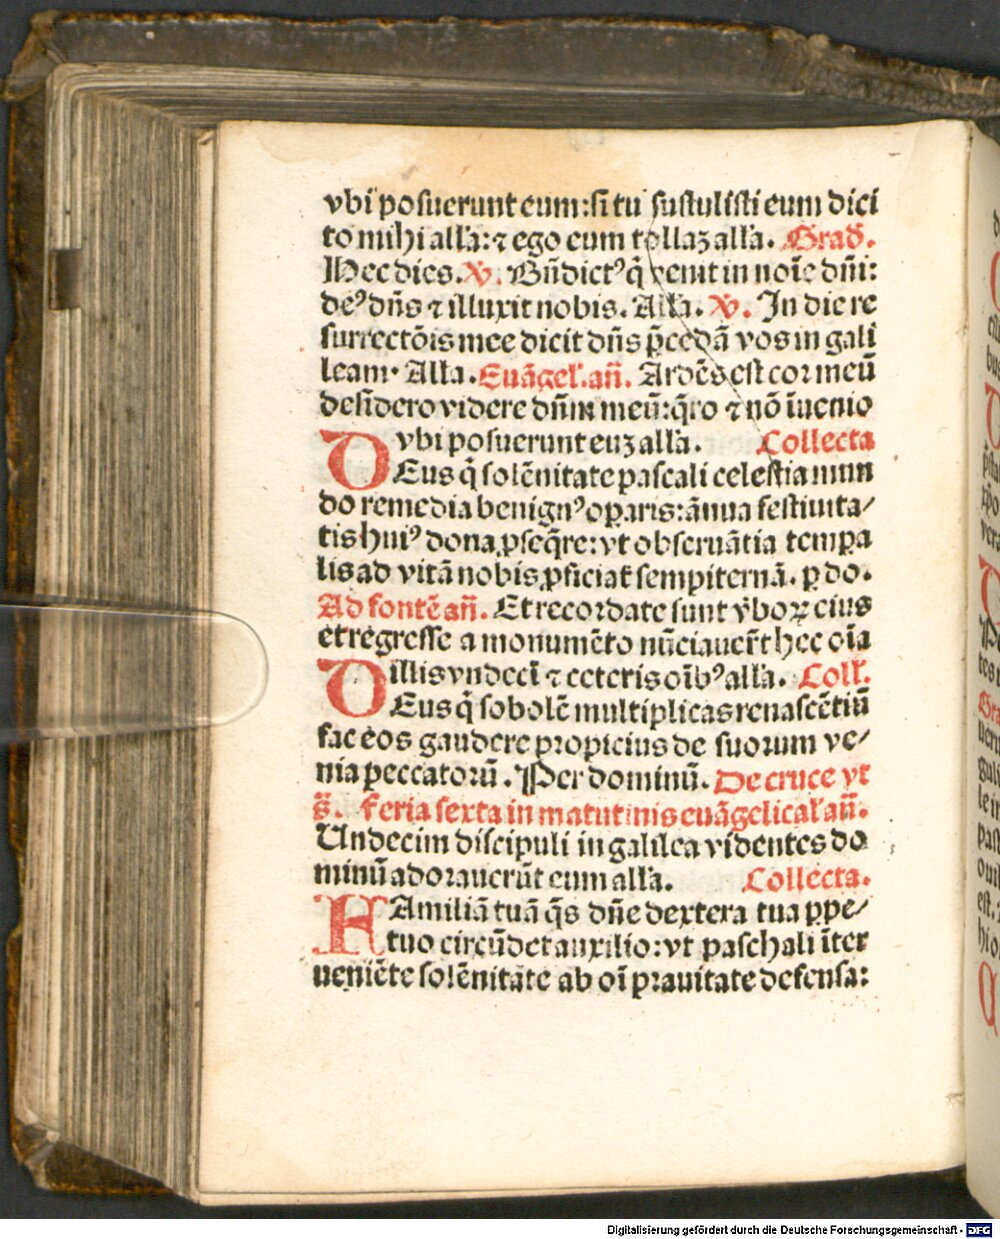 vbi posuerunt eum: si tu sustulisti eum dici
to mihi alla: ⁊ ego eum tollaꝫ alla. Grad̄.
Hec dies. ℣. Bn̄dictꝰ q̄ venit in noīe dn̄i:
deꝰ dn̄s ⁊ illuxit nobis. Alla. ℣. In die re
surrectōis mee dicit dn̄s p̄cedā vos in gali
leam. Alla. Euāgel̄. an̄. Ardēs est cor meū
desidero videre dn̄m meū: q̄ro ⁊ nō īuenio
vbi posuerunt euꝫ alla. Collecta
DEus q̄ solēnitate pascali celestia mun
do remedia benignꝰ oꝑaris: ānua festiuita/
tis huiꝰ dona ꝓseq̄re: vt obseruātia tempa
lis ad vitā nobis ꝓficiat̄ sempiternā. ꝑ do.
Ad fontē an̄. Et recordate sunt v̄boꝝ eius
et regresse a monumēto nūciauer̄t hec oīa
illis vndecī ⁊ ceteris oībꝰ alla. Coll̄.
DEus q̄ sobolē multiplicas renascētiū
fac eos gaudere propicius de suorum ve/
nia peccatorū. Per dominū. De cruce vt
s̄. feria sexta in matutinis euāgelical̄ an̄.
Undecim discipuli in galilea videntes do
minū adorauerūt eum alla. Collecta.
FAmiliā tuā q̄s dn̄e dextera tua ꝑpe/
tuo circūdet auxilio: vt paschali īter
ueniēte solēnitate ab oī prauitate defensa:
Digitalisierung gefördert durch die Deutsche Forschungsgemeinschaft - DFG